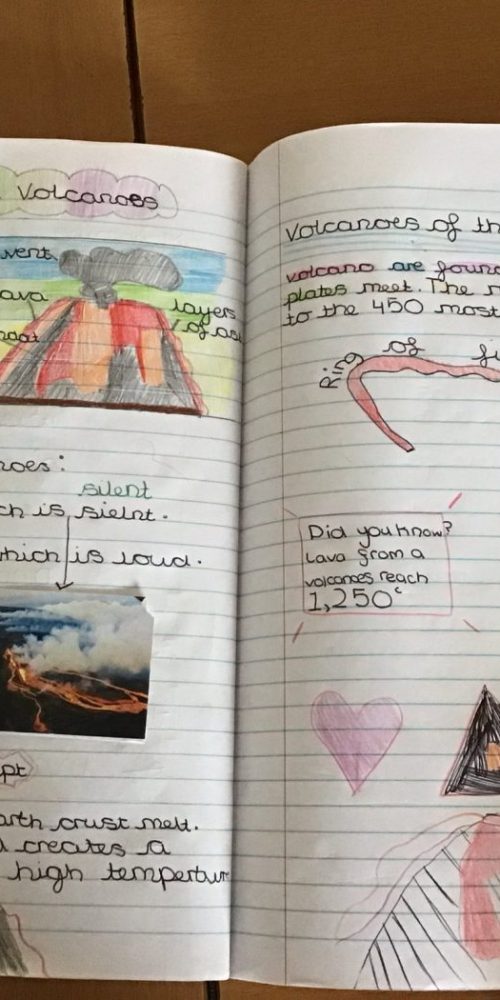 Volcanoes
vent
ava
layers
of as
noes:
silent
ch is sielnt.
which is loud.
pt
arth crust melt.
d creates a
high tempertur
Volcanoes of th
volcano are foun
plates meet. The r
to the 450 most
Ring of fi
Did you know?
Lava from a
volcanoes reach
1,250c